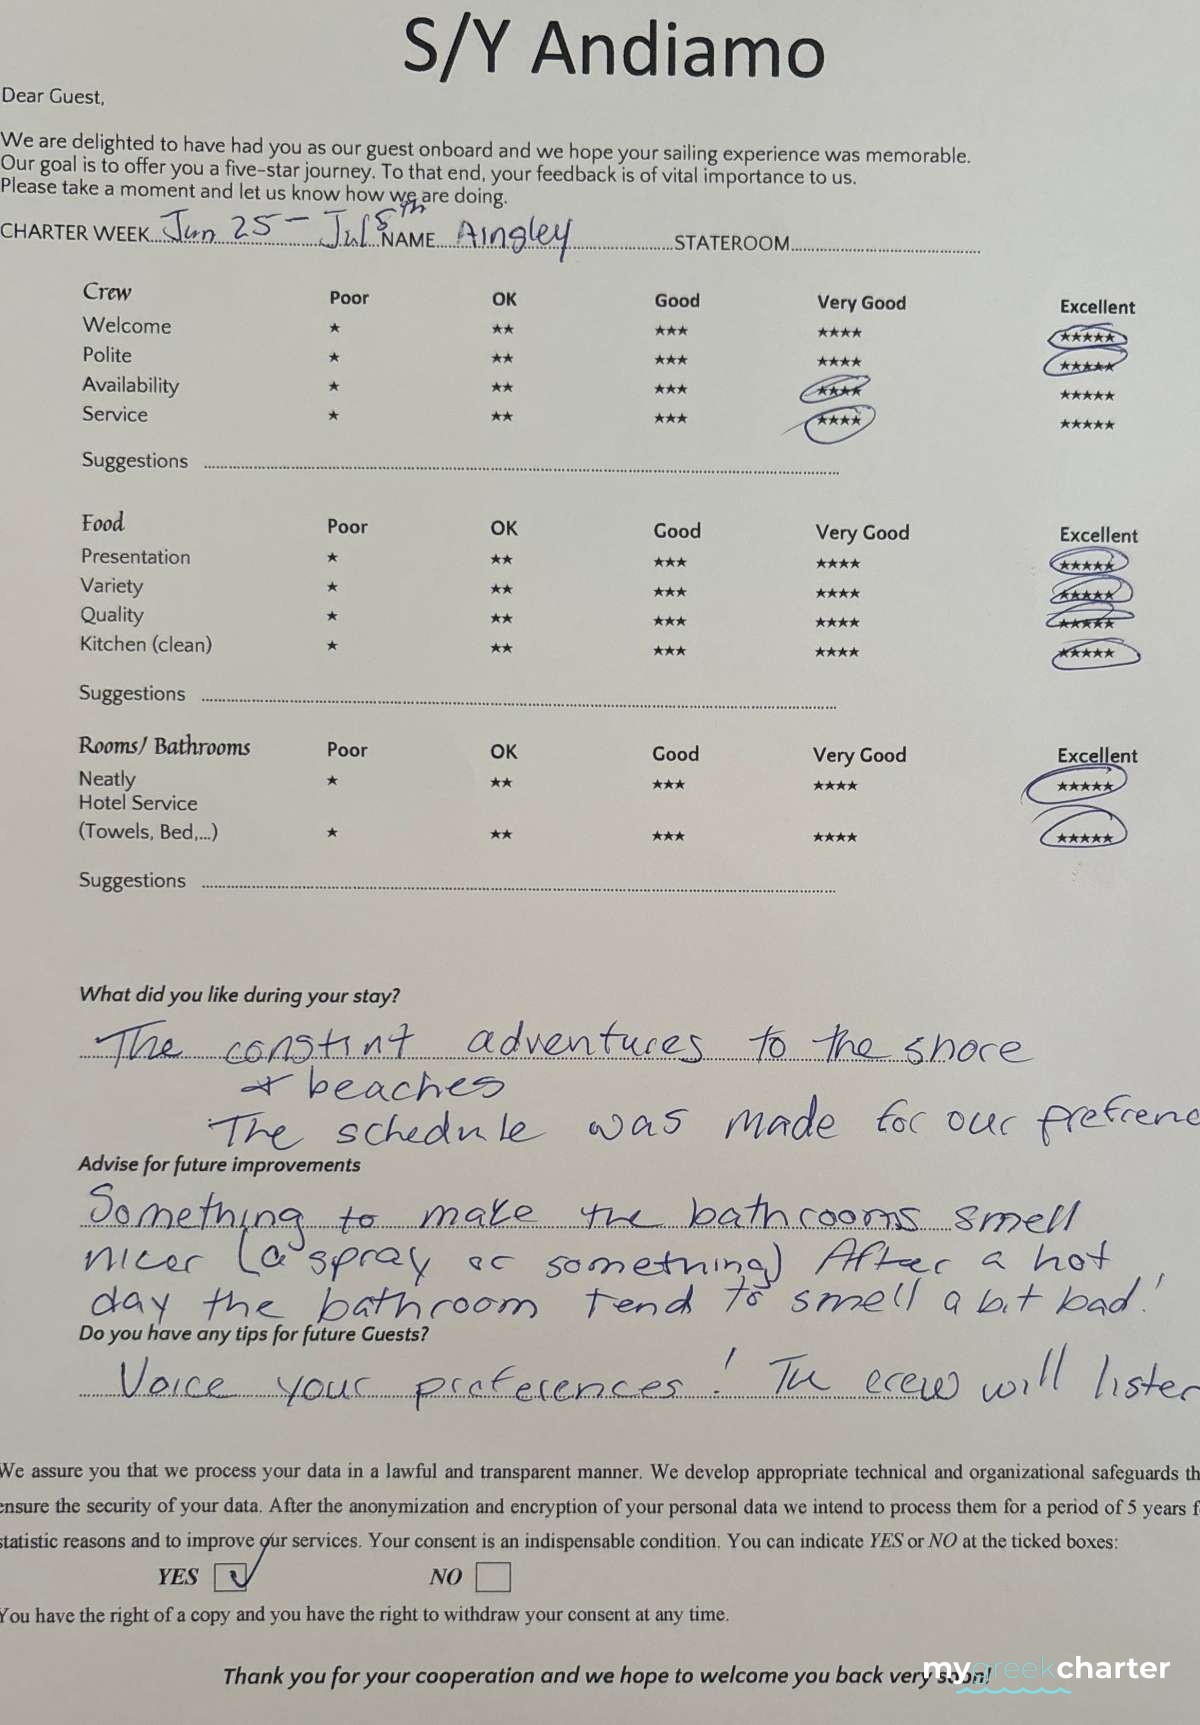 S/Y Andiamo
Dear Guest,
We are delighted to have had you as our guest onboard and we hope your sailing experience was memorable.
Our goal is to offer you a five-star journey. To that end, your feedback is of vital importance to us.
Please take a moment and let us know how we are doing.
CHARTER WEEK Jun 25 - Jul 5th NAME Aingley STATEROOM
Crew Poor OK Good Very Good Excellent
Welcome ★ ★★ ★★★ ★★★★ ★★★★★
Polite ★ ★★ ★★★ ★★★★ ★★★★★
Availability ★ ★★ ★★★ ★★★★ ★★★★★
Service ★ ★★ ★★★ ★★★★ ★★★★★
Suggestions
Food Poor OK Good Very Good Excellent
Presentation ★ ★★ ★★★ ★★★★ ★★★★★
Variety ★ ★★ ★★★ ★★★★ ★★★★★
Quality ★ ★★ ★★★ ★★★★ ★★★★★
Kitchen (clean) ★ ★★ ★★★ ★★★★ ★★★★★
Suggestions
Rooms/ Bathrooms Poor OK Good Very Good Excellent
Neatly ★ ★★ ★★★ ★★★★ ★★★★★
Hotel Service
(Towels, Bed,...) ★ ★★ ★★★ ★★★★ ★★★★★
Suggestions
What did you like during your stay?
The constint adventures to the shore
+ beaches
The schedule was made for our prefrenc
Advise for future improvements
Something to make the bathrooms smell
nicer (a spray or something) After a hot
day the bathroom tend to smell a bit bad!
Do you have any tips for future Guests?
Voice your preferences! The crew will listen
We assure you that we process your data in a lawful and transparent manner. We develop appropriate technical and organizational safeguards th
ensure the security of your data. After the anonymization and encryption of your personal data we intend to process them for a period of 5 years f
statistic reasons and to improve our services. Your consent is an indispensable condition. You can indicate YES or NO at the ticked boxes:
YES NO
You have the right of a copy and you have the right to withdraw your consent at any time.
Thank you for your cooperation and we hope to welcome you back very soon!
mygreekcharter